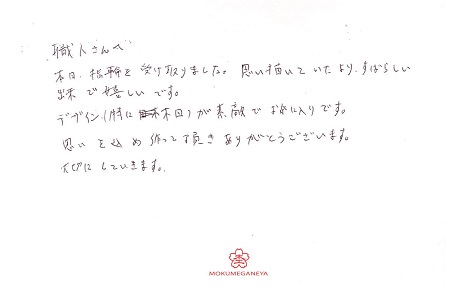 職人さんへ
本日、指輪を受け取りました。思い描いていたより、すばらしい
出来で嬉しいです。
デザイン(特に木目)が素敵でお気に入りです。
思いを込め作って頂きありがとうございます。
大切にしていきます。
MOKUMEGANEYA